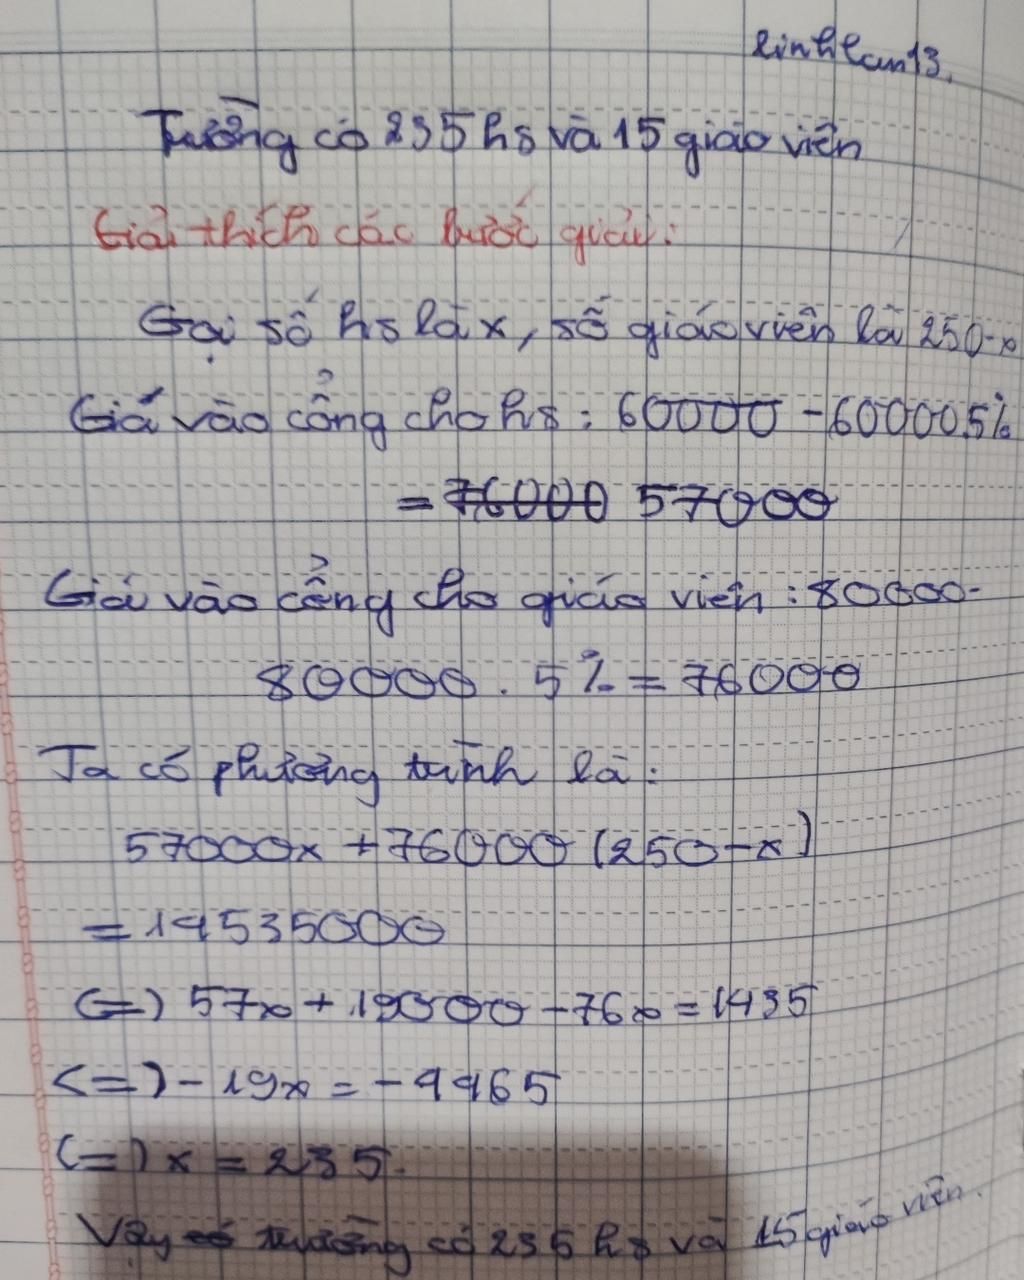 Linhlan13.
Trường có 235 hs và 15 giáo viên
Giải thích các bước giải:
Gọi số hs là x, số giáo viên là 250-x
Giá vào cổng cho hs: 60000 - 60000.5%
= 76000 57000
Giá vào cổng cho giáo viên: 80000-
80000. 5% = 76000
Ta có phương trình là:
57000x + 76000 (250-x)
= 14535000
(=) 57x + 19000 - 76x = 1435
<=) - 19x = - 4465
(=) x = 235.
Vậy có trường có 235 hs và 15 giáo viên.